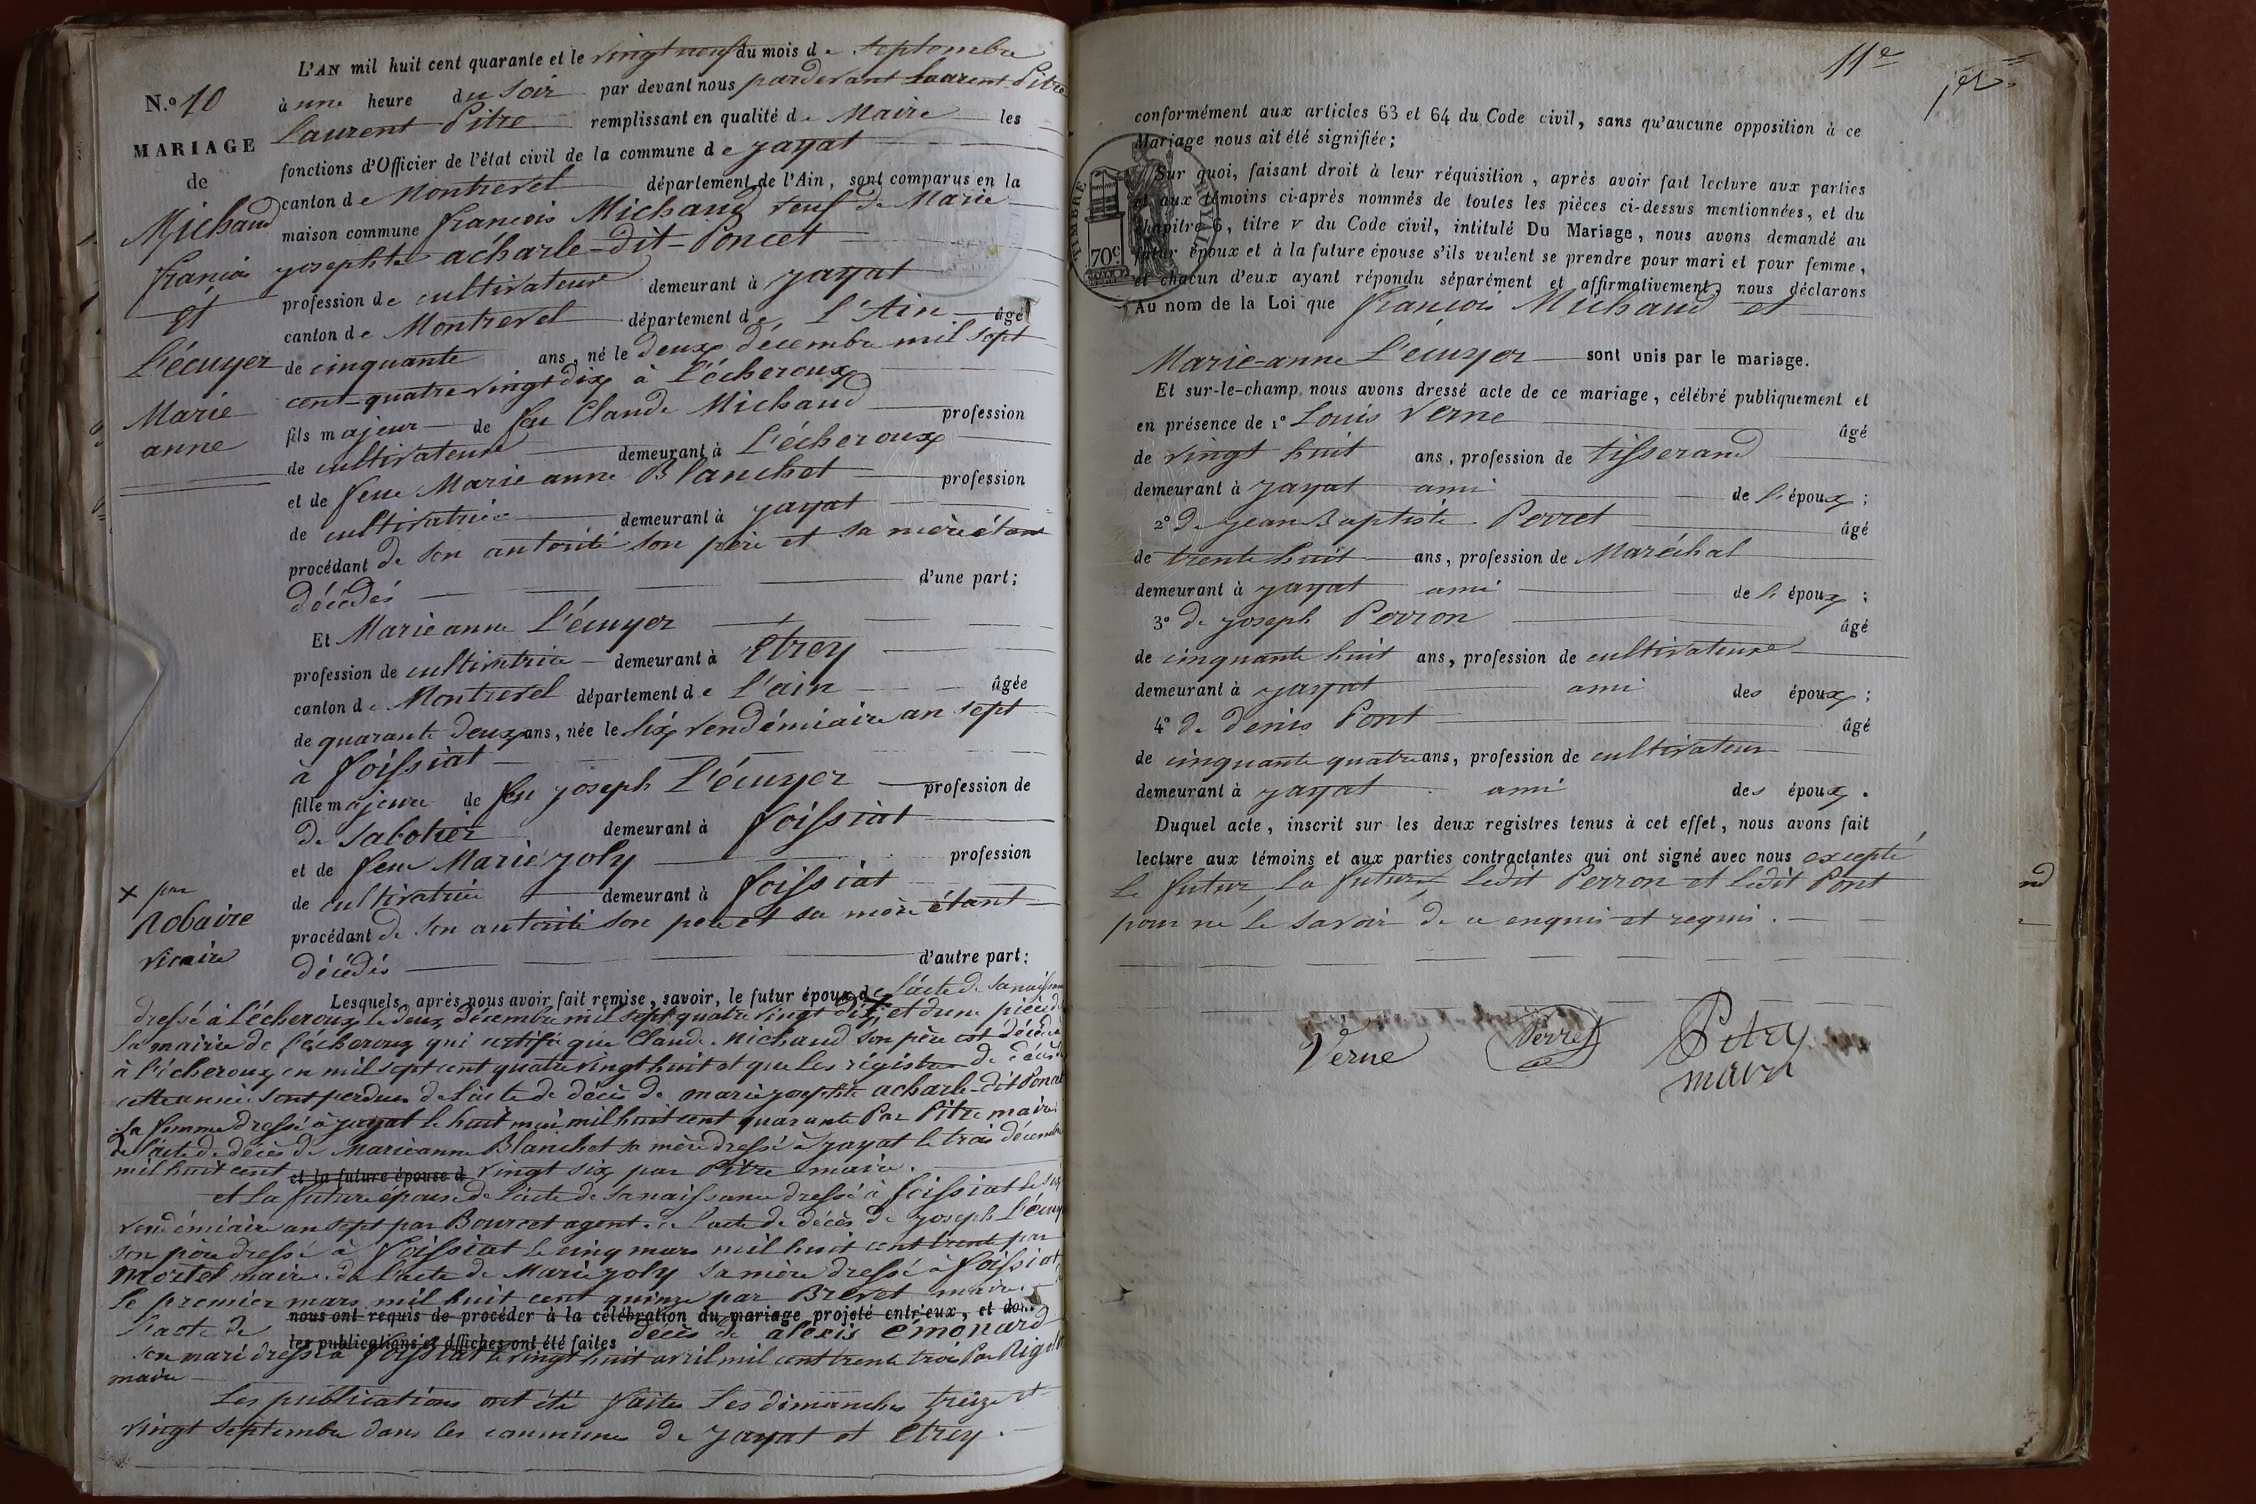 L'AN mil huit cent quarante et le vingt neuf du mois de septembre
N.º 10
à une heure du soir par devant nous pardevant Laurent Pitre
Laurent Pitre remplissant en qualité de Maire les
MARIAGE
fonctions d'Officier de l'état civil de la commune de jayat
de
canton de Montrevel département de l'Ain, sont comparus en la
Michaud
maison commune françois Michaud veuf de Marie
françois
josephte acharle-dit-Poncet
profession de cultivateur demeurant à jayat
et
canton de Montrevel département de L'Ain âgé
L'écuyer
de cinquante ans, né le deux décembre mil sept
cent quatre vingt dix à L'écheroux
Marie
fils majeur de feu Claude Michaud profession
anne
de cultivateur demeurant à L'écheroux
et de feue Marie anne Blanchet profession
de cultivatrice demeurant à jayat
procédant de son autorité son père et sa mère étant
décédés d'une part;
Et Marie anne L'écuyer
profession de cultivatrice demeurant à Etrey
canton de Montrevel département de L'ain âgée
de quarante deux ans, née le six vendémiaire an sept
à foissiat
fille majeure de feu joseph L'écuyer profession de
de sabotier demeurant à foissiat
et de feue Marie joly profession
x par
de cultivatrice demeurant à foissiat
Nobaire
procédant de son autorité son père et sa mère étant
vicaire
décédés d'autre part;
Lesquels, après nous avoir fait remise, savoir, le futur époux de L'acte de sa naissance
dressé à L'écheroux le deux décembre mil sept quatre vingt dix x et d'une pièce de
la mairie de l'écheroux qui certifie que Claude Michaud son père est décédé
à l'écheroux en mil sept cent quatre vingt huit et que les registres de décès de
cette année sont perdus de L'acte de décès de marie josephte acharle-dit Poncet
sa femme dressé à jayat le huit mai mil huit cent quarante Par Pitre maire
de l'acte de décès de Marie anne Blanchet sa mère dressé à jayat le trois décembre
mil huit cent et la future épouse d vingt six par Pitre maire.
et La future épouse de L'acte de sa naissance dressé à foissiat le six
vendémiaire an sept par Bourcet agent. de L'acte de décès de joseph L'écuyer
son père dressé à foissiat le cinq mars mil huit cent trente par
Mortel maire. de L'acte de Marie joly sa mère dressé à foissiat
le premier mars mil huit cent quinze par Brevet maire.
nous ont requis de procéder à la célébration du mariage projeté entr'eux, et dont
L'acte de décès de alexis émonard
les publications et affiches ont été faites
son mari dressé à foissiat le vingt huit avril mil cent trente trois Par
maire
Les publications ont été faites Les dimanches treize et
vingt septembre dans les communes de jayat et Etrey.
11e
conformément aux articles 63 et 64 du Code civil, sans qu'aucune opposition à ce
Mariage nous ait été signifiée;
Sur quoi, faisant droit à leur réquisition, après avoir fait lecture aux parties
et aux témoins ci-après nommés de toutes les pièces ci-dessus mentionnées, et du
chapitre 6, titre v du Code civil, intitulé Du Mariage, nous avons demandé au
futur époux et à la future épouse s'ils veulent se prendre pour mari et pour femme,
et chacun d'eux ayant répondu séparément et affirmativement, nous déclarons
TIMBRE ROYAL
70c
Au nom de la Loi que françois Michaud et
Marie-anne L'écuyer sont unis par le mariage.
Et sur-le-champ nous avons dressé acte de ce mariage, célébré publiquement et
en présence de 1º Louis Verne âgé
de vingt huit ans, profession de tisserand
demeurant à jayat ami de L'époux;
2º de jean Baptiste Perret âgé
de trente huit ans, profession de Maréchal
demeurant à jayat ami de L'époux;
3º de joseph Perron âgé
de cinquante huit ans, profession de cultivateur
demeurant à jayat ami des époux;
4º de denis Pont âgé
de cinquante quatre ans, profession de cultivateur
demeurant à jayat ami des époux.
Duquel acte, inscrit sur les deux registres tenus à cet effet, nous avons fait
lecture aux témoins et aux parties contractantes qui ont signé avec nous excepté
Le futur, La future, Ledit Perron et Ledit Pont
pour ne le savoir de ce enquis et requis.
Verne Perret Pitre
maire